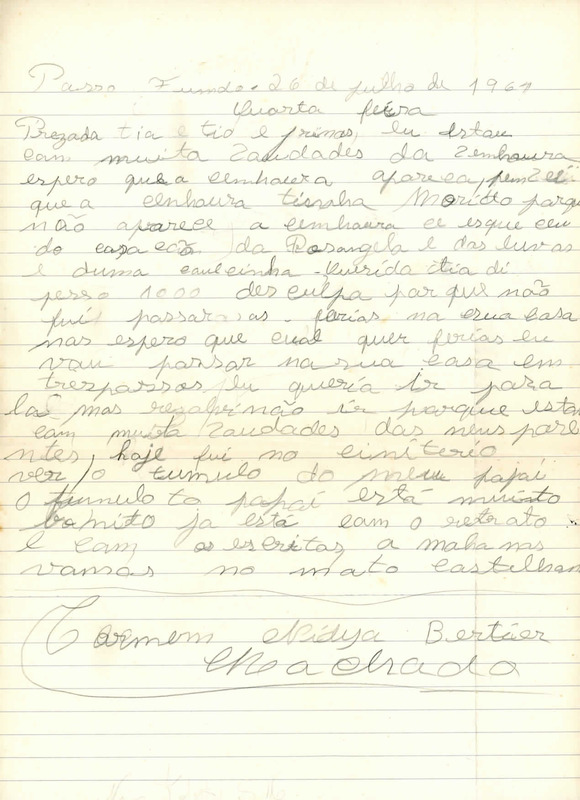 Passo Fundo, 26 de julho de 1961
Quarta feira
Prezada tia e tio e primas, Eu estou
com muita zaudades da zenhoura
espero que a cenhoura apareça, penzei
que a cenhoura tinha Morido porque
não aparece, a cenhoura ce esque ceu
do cazacão, da Rosangela e das luvas
e duma calcinha. Querida tia di
pesso 1000 desculpa por que não
fui passar as ferias na sua casa
nas espero que cual quer ferias eu
vou passar na sua casa em
trespassos, Eu queria ir para
las mas rezolvi não ir porque estou
com muita zaudades dos neus pare
ntes, hoje fui no cimitério
ver o tumulo do meu papai
O tumulo to papai está muinto
bonito ja está com o retrato
e com os escritos, a mahanas
vamos no mato castelhan
Carmem Nidya Bertier
Machado